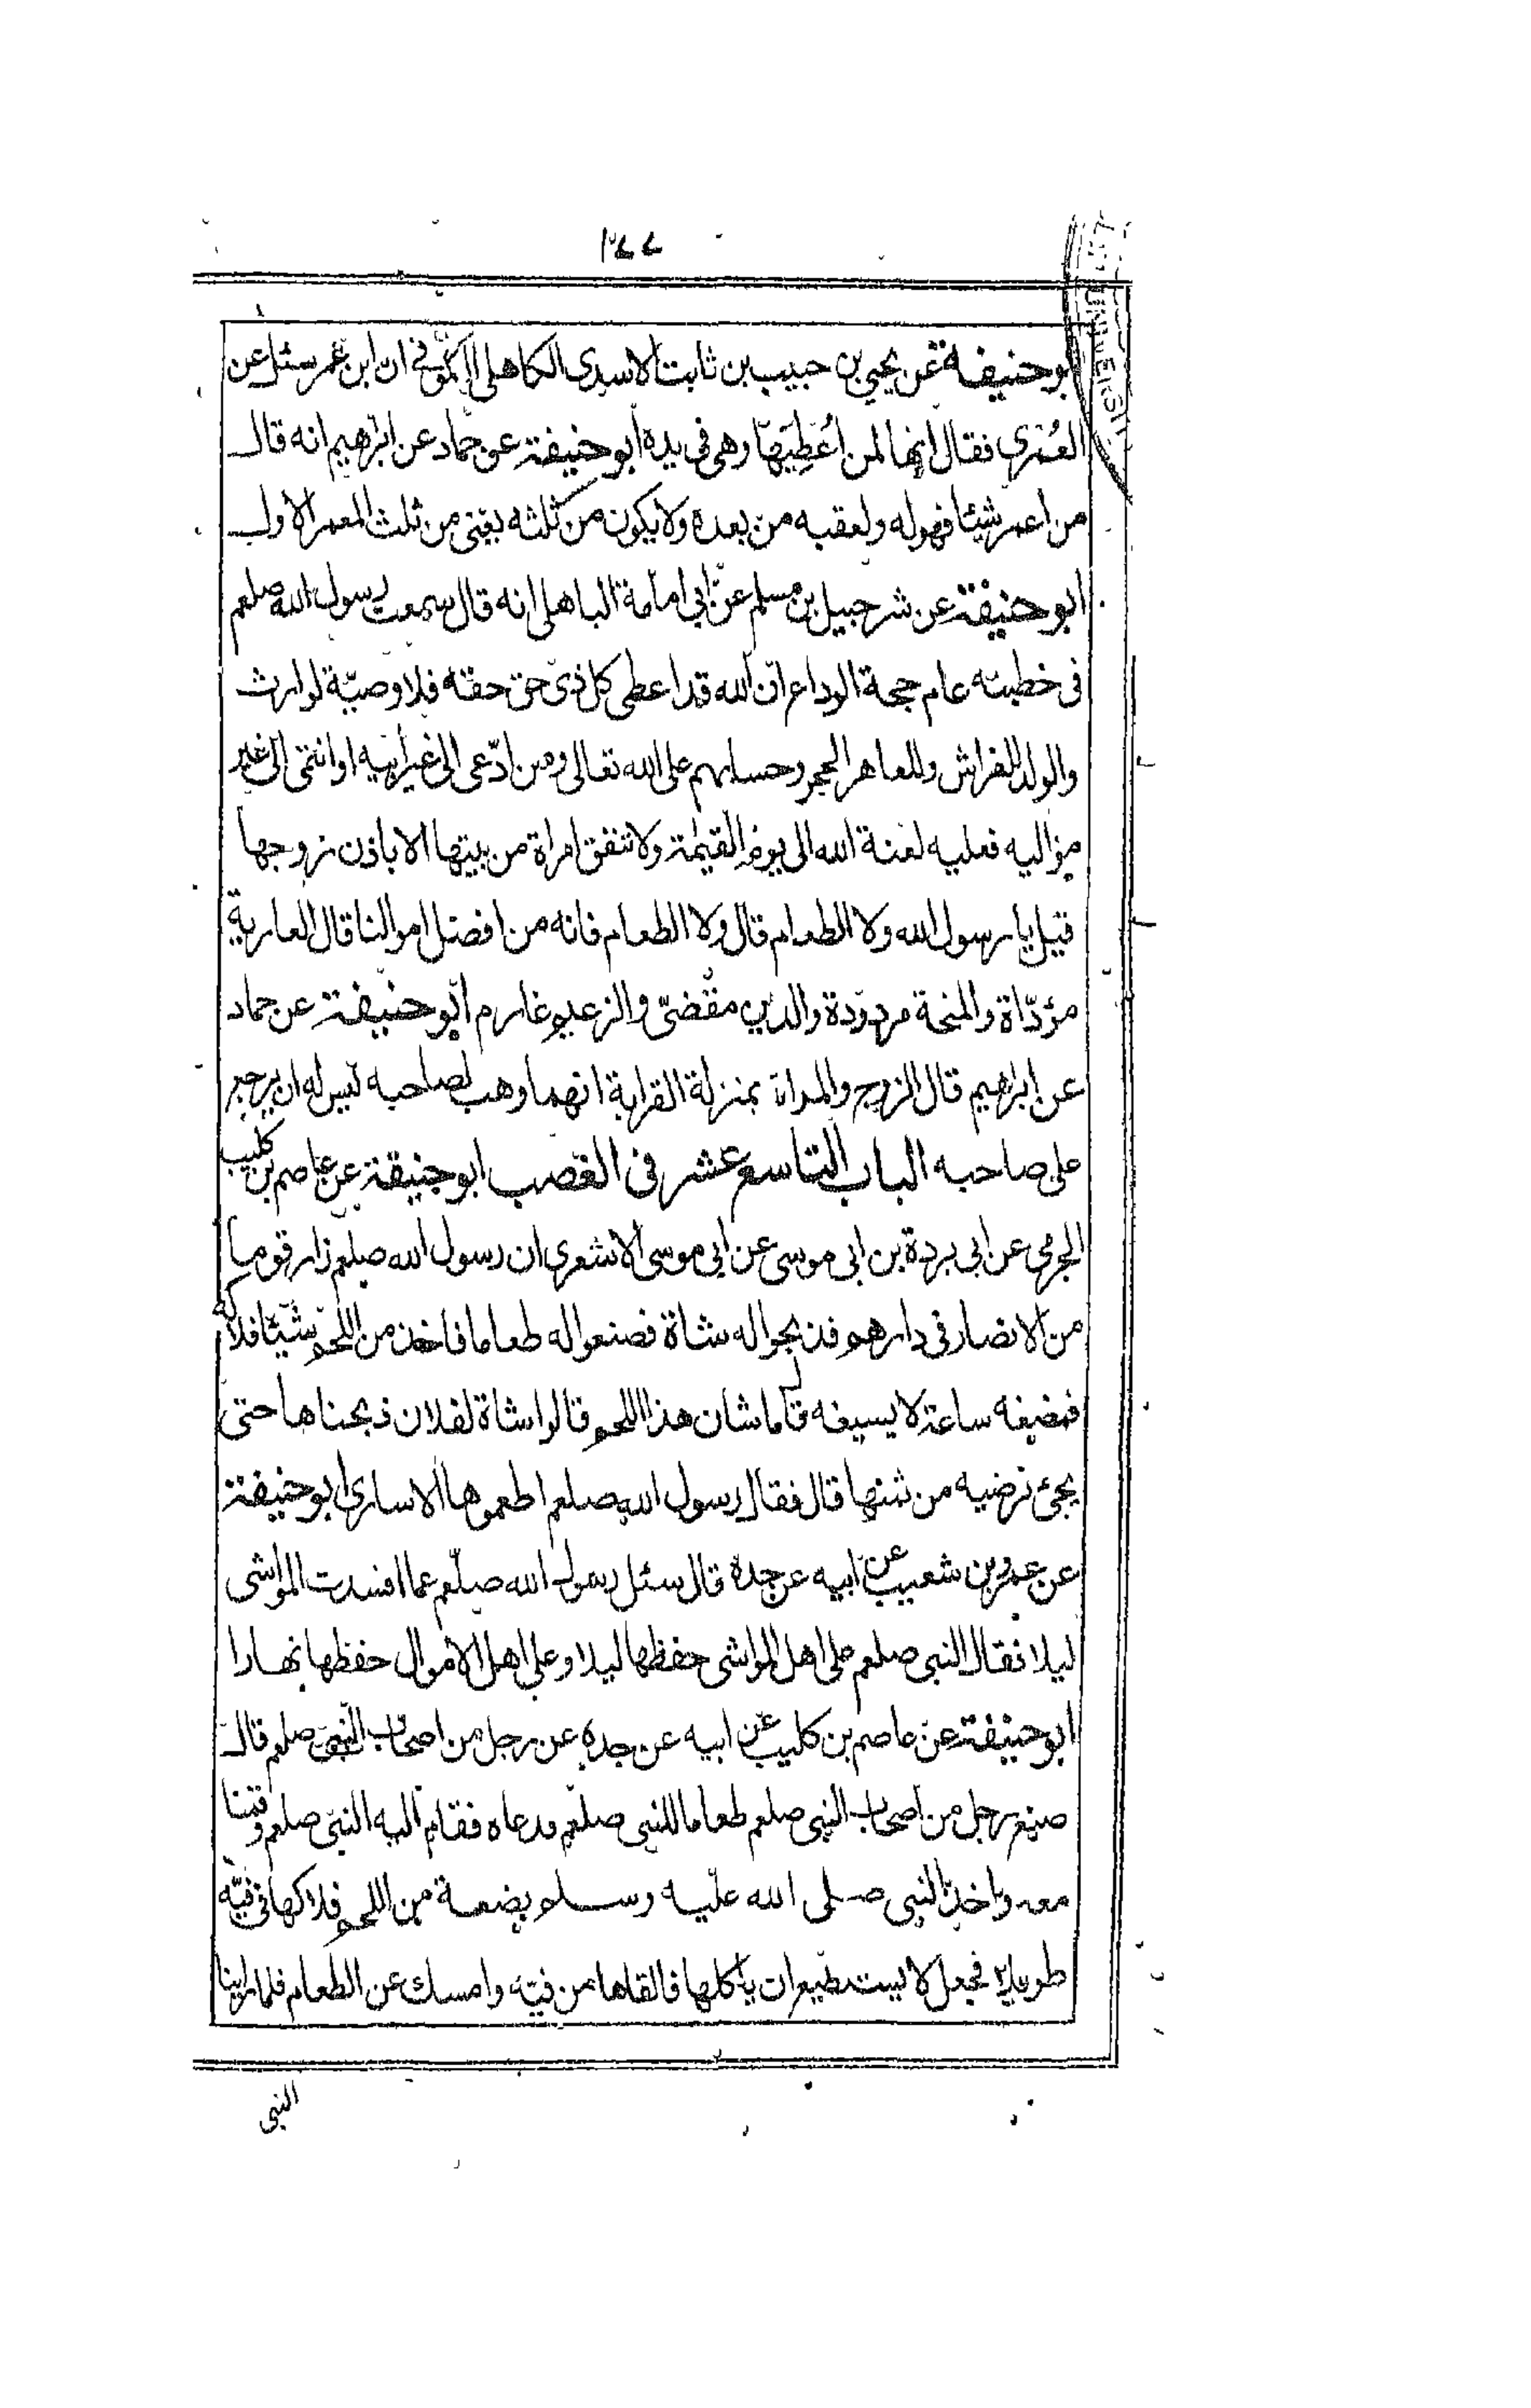 ٣٤٤
ابوحنيفة عن يحيى بن حبيب بن ثابت الاسدى الكاهلى الكوفى ان ابن عمر سئل عن
العُمْرى فقال انها لمن اُعْطِيَها وهى فى يده ابوحنيفة عن حماد عن ابراهيم انه قال
من اعمر شيئا فهوله ولعقبه من بعده ولا يكون من ثلثه يعنى من ثلث المعمر الاول
ابوحنيفة عن شرحبيل بن مسلم عن ابى امامة الباهلى انه قال سمعت رسول الله صلعم
فى خطبته عام حجة الوداع ان الله قد اعطى كل ذى حق حقه فلا وصيّة لوارث
والولد للفراش وللعاهر الحجر وحسابهم على الله تعالى ومن ادّعى الى غير ابيه او انتمى الى غير
مواليه فعليه لعنة الله الى يوم القيٰمة ولا تنفق امراة من بيتها الا باذن زوجها
قيل يا رسول الله ولا الطعام قال ولا الطعام فانه من افضل اموالنا قال العارية
مؤدّاة والمنحة مردودة والدين مقضىّ والزعيم غارم ابوحنيفة عن حماد
عن ابراهيم قال الزوج والمراة بمنزلة القرابة ايهما وهب لصاحبه ليس له ان يرجع
على صاحبه الباب التاسع عشر فى الغصب ابوحنيفة عن عاصم بن كليب
الجرمى عن ابى بردة بن ابى موسى عن ابى موسى الاشعرى ان رسول الله صلعم زار قوما
من الانصار فى دارهم فذبحوا له شاة فصنعوا له طعاما فاخذ من اللحم شيئا فلاكه
فمضغه ساعة لا يسيغه قال ما شان هذا اللحم قالوا شاة لفلان ذبحناها حتى
يجئ نرضيه من ثمنها قال فقال رسول الله صلعم اطعموها الاسارى ابوحنيفة
عن عمرو بن شعيب عن ابيه عن جده قال سئل رسول الله صلعم عما افسدت المواشى
ليلا فقال النبى صلعم على اهل المواشى حفظها ليلا وعلى اهل الاموال حفظها نهارا
ابوحنيفة عن عاصم بن كليب عن ابيه عن جده عن رجل من اصحاب النبى صلعم قال
صنع رجل من اصحاب النبى صلعم طعاما للنبى صلعم فدعاه فقام اليه النبى صلعم وقمنا
معه واخذ النبى صلى الله عليه وسلم بضعة من اللحم فلاكها فى فيّه
طويلا فجعل لا يستطيع ان ياكلها فالقاها من فيّه وامسك عن الطعام فلما راينا
النبى